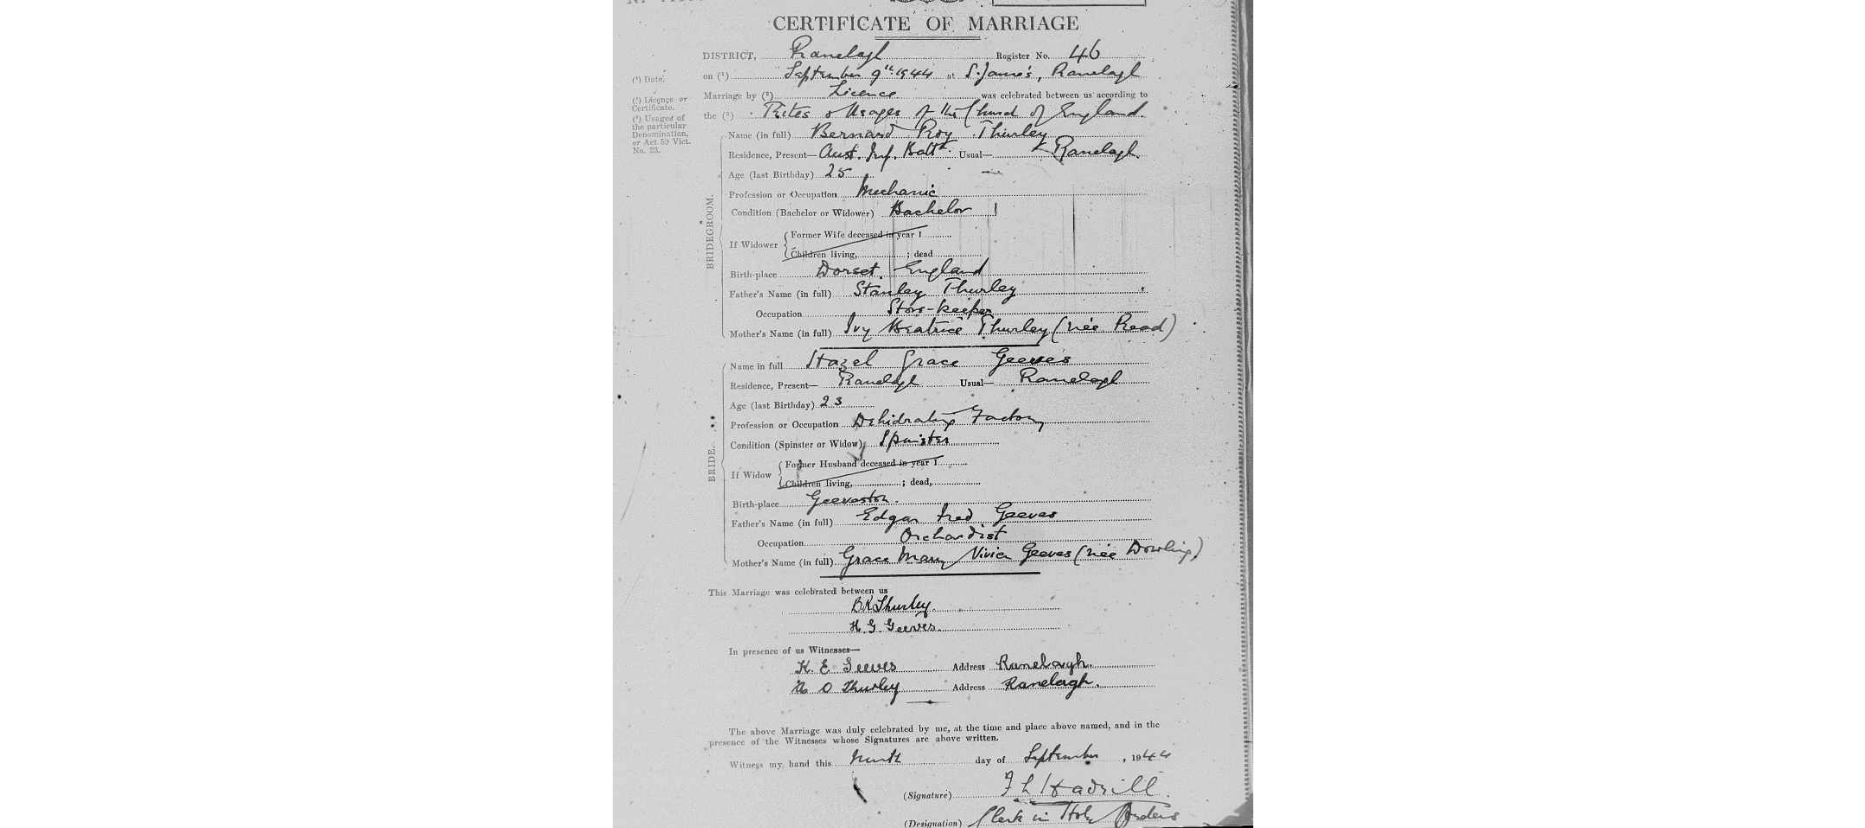 CERTIFICATE OF MARRIAGE
DISTRICT, Ranelagh Register No. 46
on (¹) September 9th 1944 at S. James's, Ranelagh
Marriage by (²) Licence was celebrated between us according to
the (³) Rites & Usages of the Church of England.
(¹) Date.
(²) Licence or
Certificate.
(³) Usages of
the particular
Denomination,
or Act 59 Vict.
No. 23.
BRIDEGROOM.
Name (in full) Bernard Roy Thurley
Residence, Present— Aust. Inf. Batt. Usual— Ranelagh
Age (last Birthday) 25
Profession or Occupation Mechanic
Condition (Bachelor or Widower) Bachelor
If Widower { Former Wife deceased in year 1
Children living, ; dead
Birth-place Dorset, England
Father's Name (in full) Stanley Thurley
Occupation Store-keeper
Mother's Name (in full) Ivy Beatrice Thurley (née Read)
BRIDE.
Name in full Hazel Grace Geeves
Residence, Present— Ranelagh Usual— Ranelagh
Age (last Birthday) 23
Profession or Occupation Dehidrating Factory
Condition (Spinster or Widow) Spinster
If Widow { Former Husband deceased in year 1
Children living, ; dead,
Birth-place Geeveston.
Father's Name (in full) Edgar Fred Geeves
Occupation Orchardist
Mother's Name (in full) Grace Mary Geeves (née Dowling)
This Marriage was celebrated between us
B.R. Thurley.
H. G. Geeves.
In presence of us Witnesses—
K. E. Geeves Address Ranelagh.
O Thurley Address Ranelagh.
The above Marriage was duly celebrated by me, at the time and place above named, and in the
presence of the Witnesses whose Signatures are above written.
Witness my hand this Ninth day of September, 1944
(Signature) F L Hadrill.
(Designation) Clerk in Holy Orders